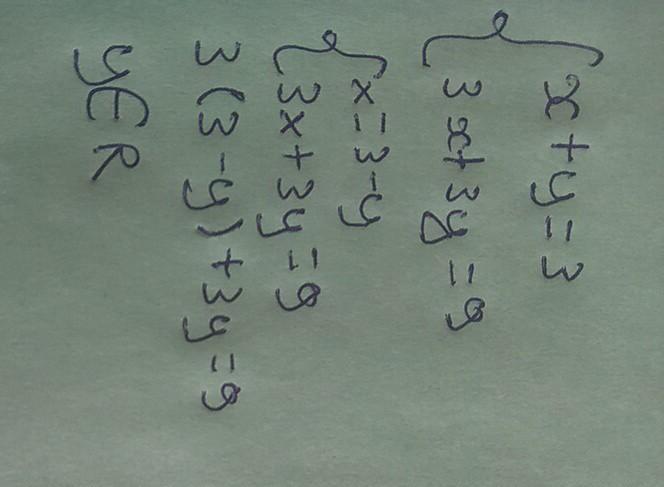 x + y = 3
3x + 3y = 9
x = 3 - y
3x + 3y = 9
3 (3 - y) + 3y = 9
y ∈ R